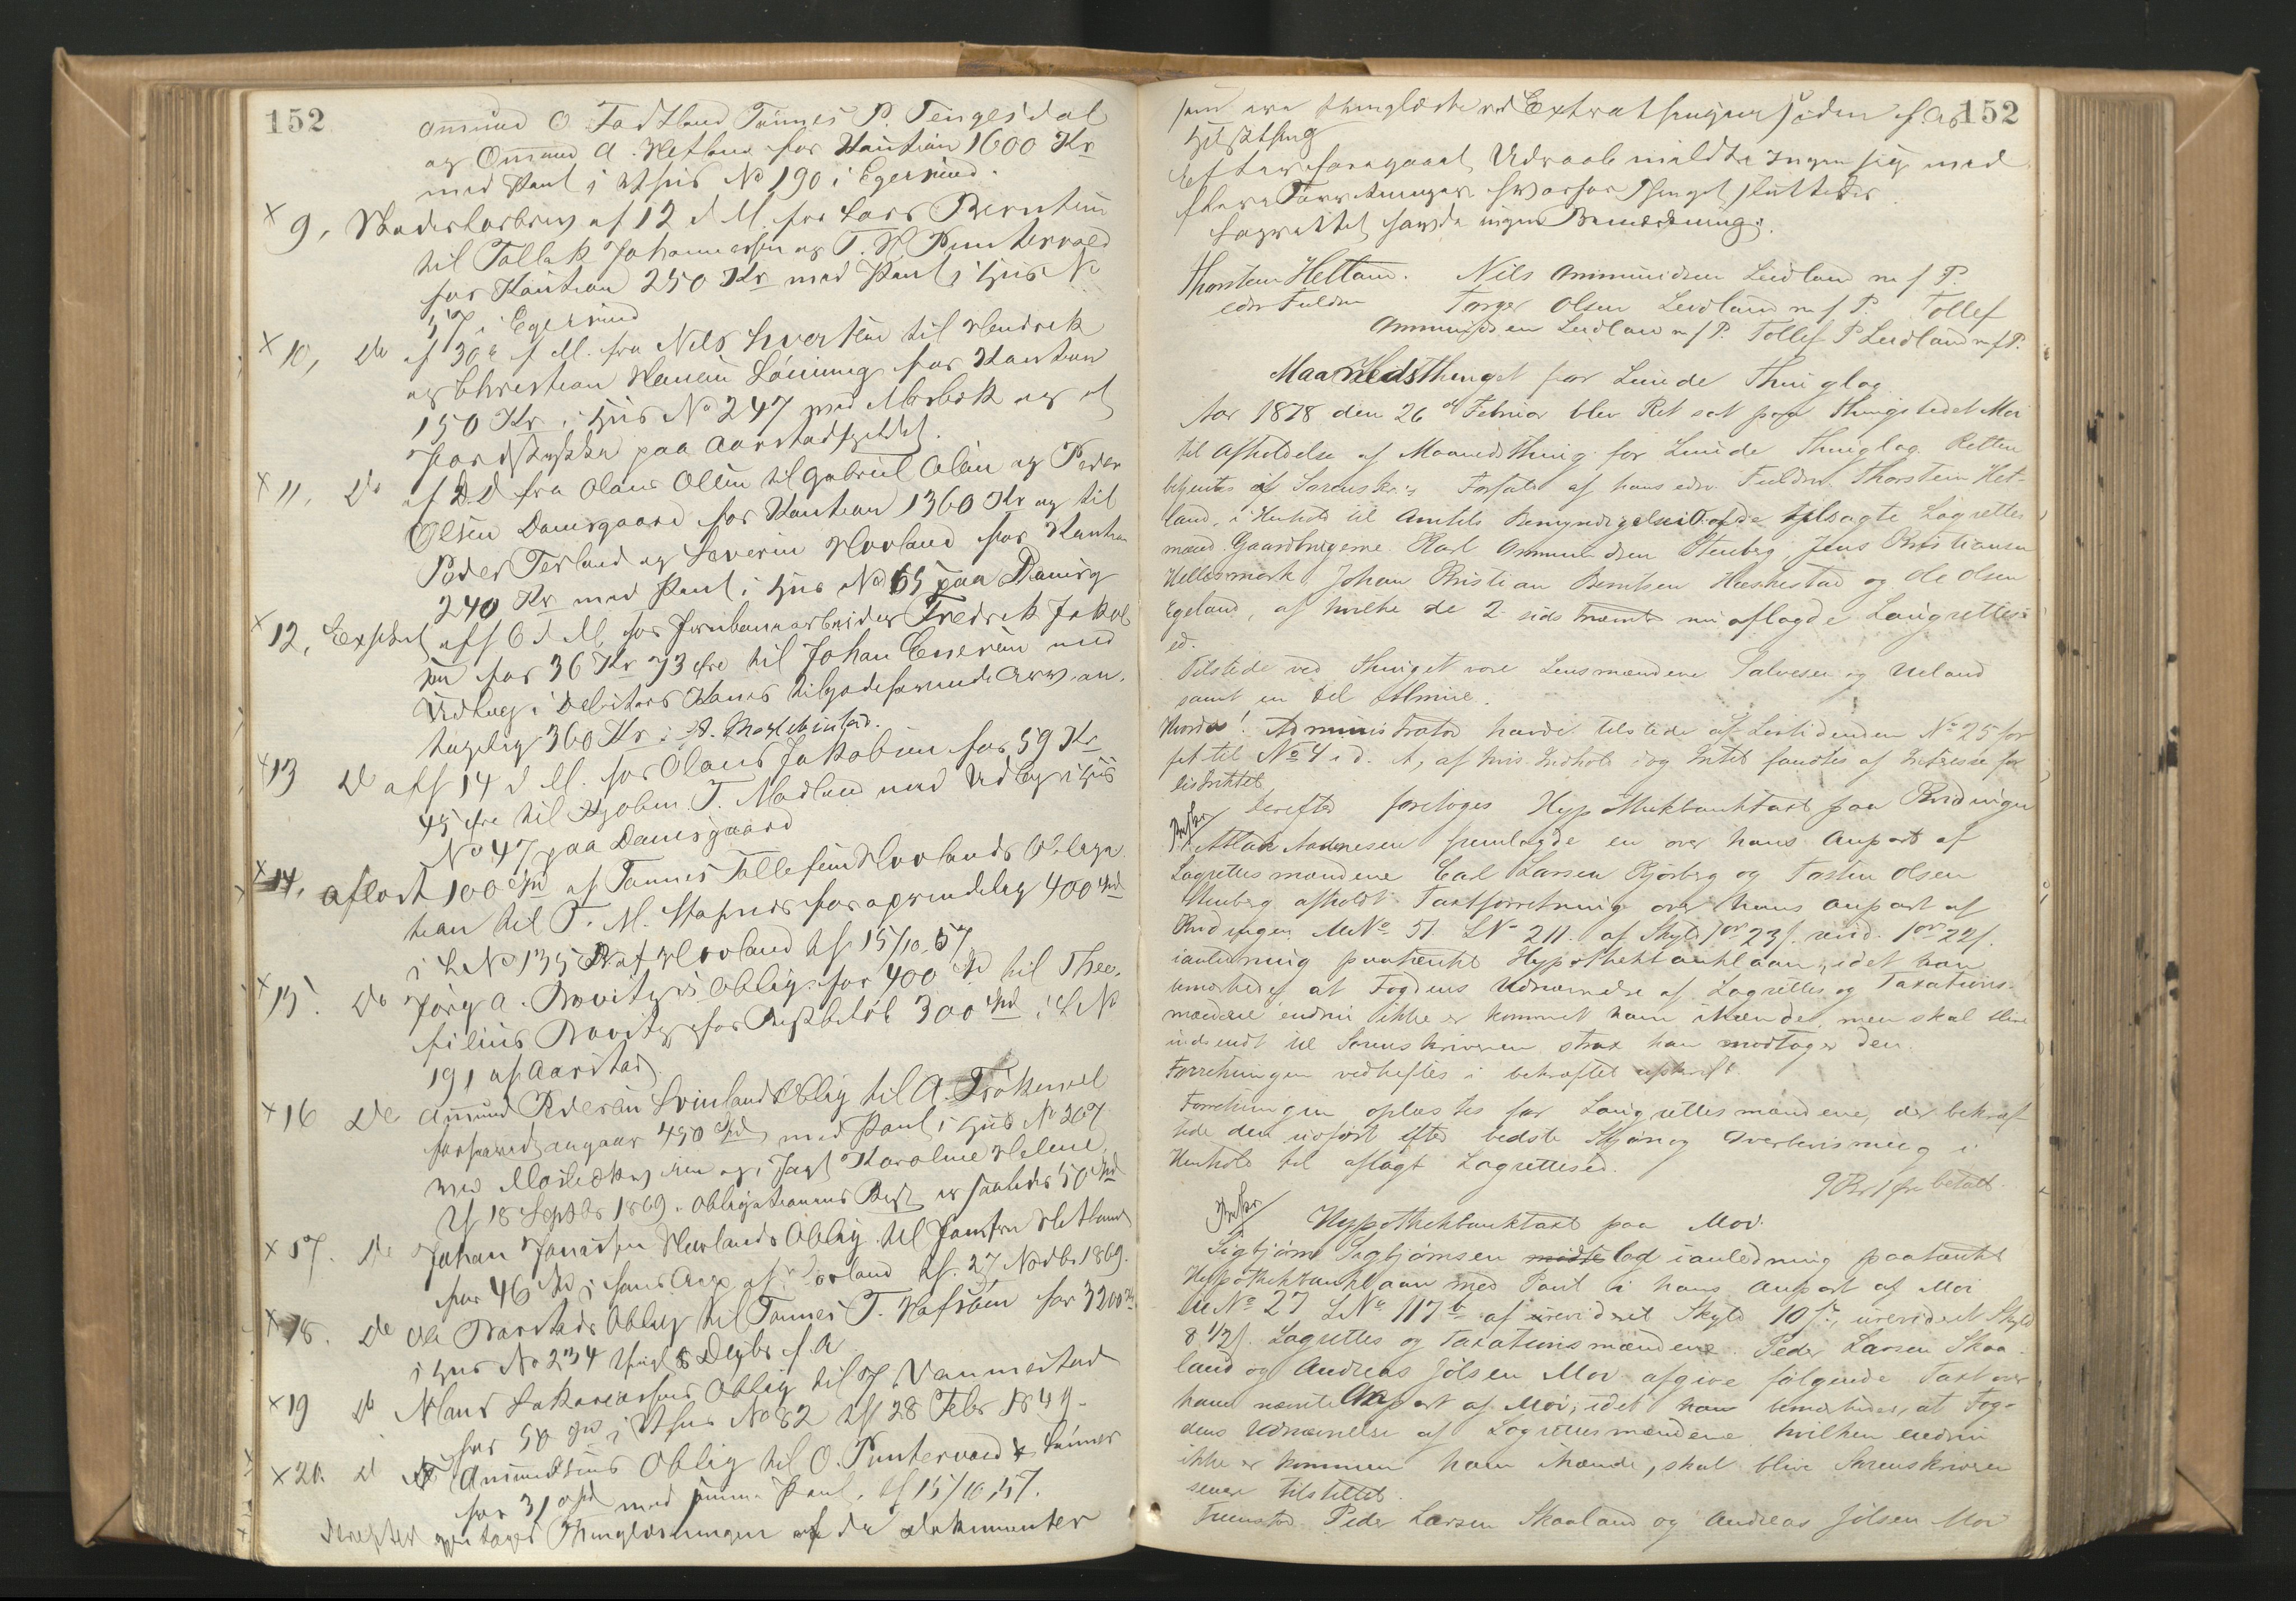 152
Ommund O. Tadtland Tønnes P. Tengesdal
og Ommund A. Hetland for Kaution 1600 Kr
med Pant i Huus No 190 i Egersund.
x 9, Skadesløsbrev af 12 d M. fra Lars Berntsen
til Tollak Johannessen og T. H. Puntervold
for Kaution 250 Kr med Pant i Huus No
57 i Egersund
x 10, Do af 30te f M. fra Nils Sivertsen til Hendrik
og Christian Hansen Løining for Kaution
150 Kr i Huus No 247 med og et
Jordstykke paa Aarstadfjeldet.
x 11. Do af D.D fra Olaus Olsen til Gabriel Olsen og Peder
Olsen Damsgaard for Kaution 1360 Kr og til
Peder Terland og Severin Hovland for Kaution
240 Kr med Pant i Huus No 65 paa Damsg
x 12, Exfht afh 6 d M. hos Jernbanearbeider Fredrik Jakob
sen for 36 Kr 73 Øre til Johan Eversen med
Udlæg i Debitors Kones tilgodehavende Arv an-
tagelig 360 Kr i
x 13 Do afh 14 d M. hos Olaus Jakobsen for 59 Kr
45 Øre til Kjøbm. T. Madland med Udlæg i Huus
No 47 paa Damsgaard
x 14. Aflæst 100 Spd af Tønnes Tollefsen Hovlands Obliga
tion til T. M. Stapnes for oprindelig 400 Spd
i L No 135 af Hovland tgl 15/10 57.
x 15. Do Jørg A. Bovitz's Oblig. for 400 Spd til Theo-
filius Bovitz for Restbeløb 300 Spd i L No
191 af Aarstad.
x 16 Do Amund Pedersen Svinlands Oblig til A.
forsaavidt angaar 450 Spd med Pant i Huus No 207
med og i Jagt Karoline Helene
tgl 18 Septbr 1869. Obligationens Rest er saaledes 50 Spd
x 17. Do Johan Jonassen Hovlands Oblig. til Hetland
for 46 Spd i hans Anp af Hovland tgl. 27 Novbr 1869.
x 18. Do Ole Barstads Oblig til Tønnes T. Hafsøen for 3200 Kr
i Huus No 234 tingl 8 Dezbr f. A
x 19 Do Hans Sakariassens Oblig til J. Vanmestad
for 50 Spd i Huus No 82 tgl 28 Febr 1849.
x 20. D Amundsens Oblig til O. Puntervold & Sønner
for 31 Spd med samme Pant, tgl 15/10 57.
Derefter gjentoges Thinglæsningen af de Dokumenter
152
som ere thinglæste ved Extrathingene siden f. A's
Høstthing
Efter foregaaet Udraab meldte Ingen sig med
flere Forretninger hvorfor Thinget sluttedes
Lagrettet havde ingen Bemærkning.
Thorstein Hetland. Nils Ommundsen Leidland m f P.
edsv Fuldm Torger Olsen Leidland m f P. Tollef
Ommundsen Leidland m f P. Tollef P Leidland m f P.
Maanedsthinget for Lunde Thinglag
Aar 1878 den 26de Februar blev Ret sat paa Thingstedet Moi
til Afholdelse af Maanedsthing for Lunde Thinglag. Retten
betjentes i Sorenskr.s Forfald af hans edsv. Fuldm. Thorstein Het-
land, i Henhold til Amtets Bemyndigelse og de tilsagte Lagrettes
mænd Gaardbrugerne Karl Ommundsen Stenberg, Jens Kristiansen
Hellesmark, Johan Kristian Berntsen Haskestad og Ole Olsen
Egeland, af hvilke de 2 sidstnævnte nu aflagde Laugrettes-
ed.
Tilstede ved Thinget vare Lensmændene Salvesen og Ueland
samt en Del Almue.
Hvorda! Administrator havde tilstede af Lovtidenden No 25 for
f.A. til No 4 i d. A, af hvis Indhold dog Intet fandtes af Interesse for
Distriktet
Derefter foretoges Hypothekbanktaxt paa Rudningen
Attlak Aanesen fremlagde en over hans Anpart af
Lagrettesmændene Carl Larsen Bjørberg og Tosten Olsen
Stenberg afholdt Taxtforretning over hans Anpart af
Rudningen MNo 51 LNo 211. af Skyld 1ort 23 s. revid. 1ort 22 s.
ianledning paatænkt Hypothekbanklaan, idet han
bemærkede at Fogdens Udnævnelse af Lagrettes og Taxations-
mændene endnu ikke er kommet ham ihænde, men skal blive
indsendt til Sorenskriveren strax han modtager den.
Forretningen vedheftes i bekræftet Afskrift
Forretningen oplæstes for Laugrettesmændene, der bekræf-
tede den udført efter bedste Skjøn og Overbevisning i
Henhold til aflagt Lagrettesed.
9 Kr 1 Øre betalt.
Hypothekbanktaxt paa Moi.
Sigbjørn Sigbjørnsen lod ianledning paatænkt
Hypothekbanklaan med Pant i hans Anpart af Moi
MNo 27 LNo 117b af urevideret Skyld 10 s, urevideret Skyld
8 1/2 s. Lagrettes og Taxationsmændene Peder Larsen Skaa-
land og Andreas Jølsen Moi afgive følgende Taxt over
hans nævnte Anpart af Moi, idet han bemærkede, at Fog-
dens Udnævnelse af Lagrettesmændene hvilken endnu
ikke er kommen ham ihænde, skal blive Sorenskriveren
senere tilstillet.
Fremstod Peder Larsen Skaaland og Andreas Jølsen Moi